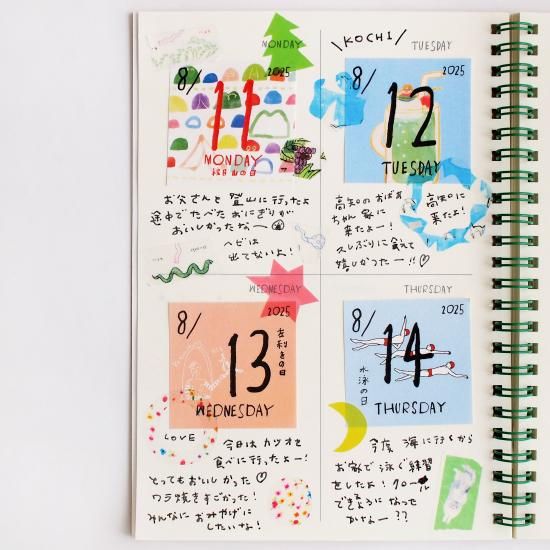 MONDAY
8/
11
2025
MONDAY
山の日
お父さんと登山に行ったよ
途中でたべたおにぎりが
おいしかったな〜
ヘビは
出てないよ!
\KOCHI/
TUESDAY
8/
12
2025
TUESDAY
高知のおばあ
ちゃん家に
来たよー!
久しぶりに会えて
嬉しかったー!!♡
高知に
来たよ!
WEDNESDAY
8/
13
2025
左利きの日
WEDNESDAY
LOVE
今日はカツオを
食べに行ったよー!
とってもおいしかった♡
ワラ焼きすごかった!
みんなにおみやげに
したいな!
THURSDAY
8/
14
2025
水泳の日
THURSDAY
今度海に行くから
お家で泳ぐ練習
をしたよ!クロール
できるようになった
かなー??